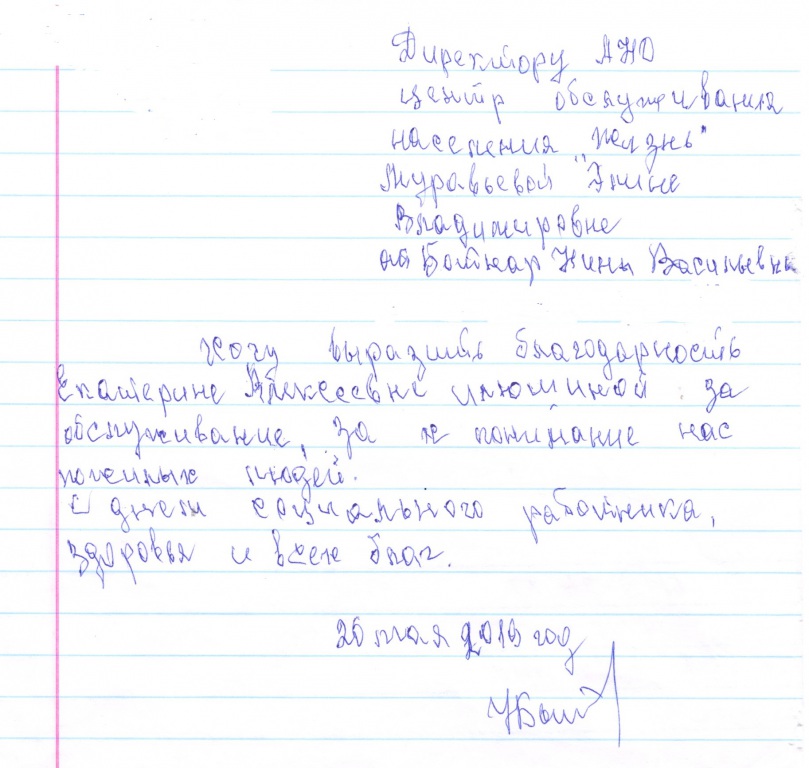 Директору АНО
центр обслуживания
населения „Жизнь"
Муравьевой Элине
Владимировне
от Боткар Нины Васильевны
Хочу выразить благодарность
Екатерине Алексеевне Илюшиной за
обслуживание, за понимание нас
пожилых людей.
С днем социального работника,
здоровья и всех благ.
20 мая 2019 год